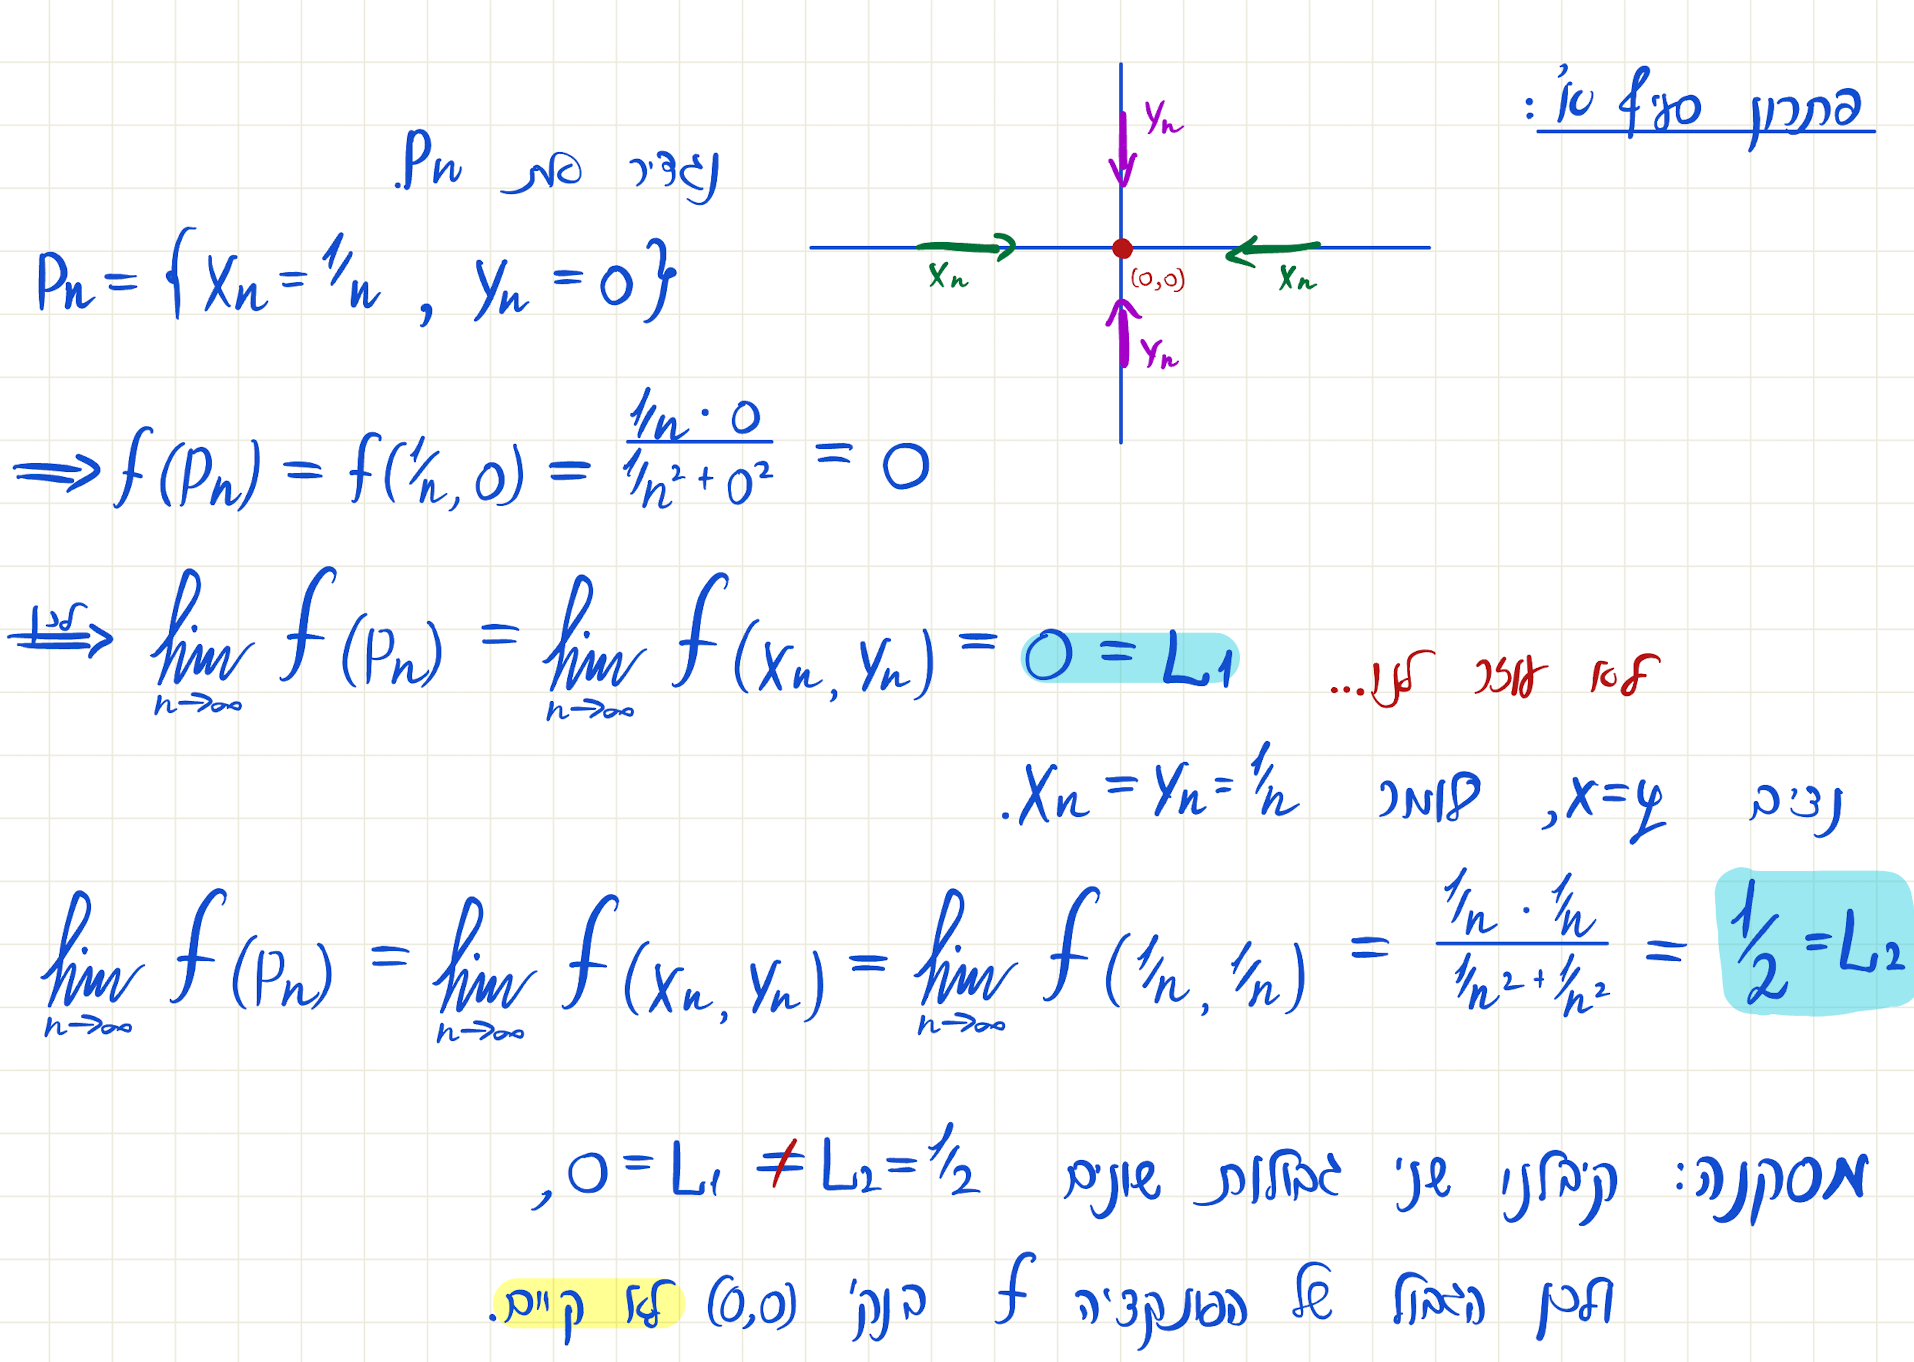 פתרון סעיף א':
נגדיר את Pn.
Pn = { Xn = 1/n , Yn = 0 }
Yn
Xn
(0,0)
Xn
Yn
⟹ f(Pn) = f(1/n, 0) = (1/n · 0)/(1/n² + 0²) = 0
לכן ⟹ lim n→∞ f(Pn) = lim n→∞ f(Xn, Yn) = 0 = L1
לא עוזר לנו...
נציב x=y, כלומר Xn = Yn = 1/n.
lim n→∞ f(Pn) = lim n→∞ f(Xn, Yn) = lim n→∞ f(1/n, 1/n) = (1/n · 1/n)/(1/n² + 1/n²) = 1/2 = L2
מסקנה: קיבלנו שני גבולות שונים 0 = L1 ≠ L2 = 1/2,
ולכן הגבול של הפונקציה f בנק' (0,0) לא קיים.